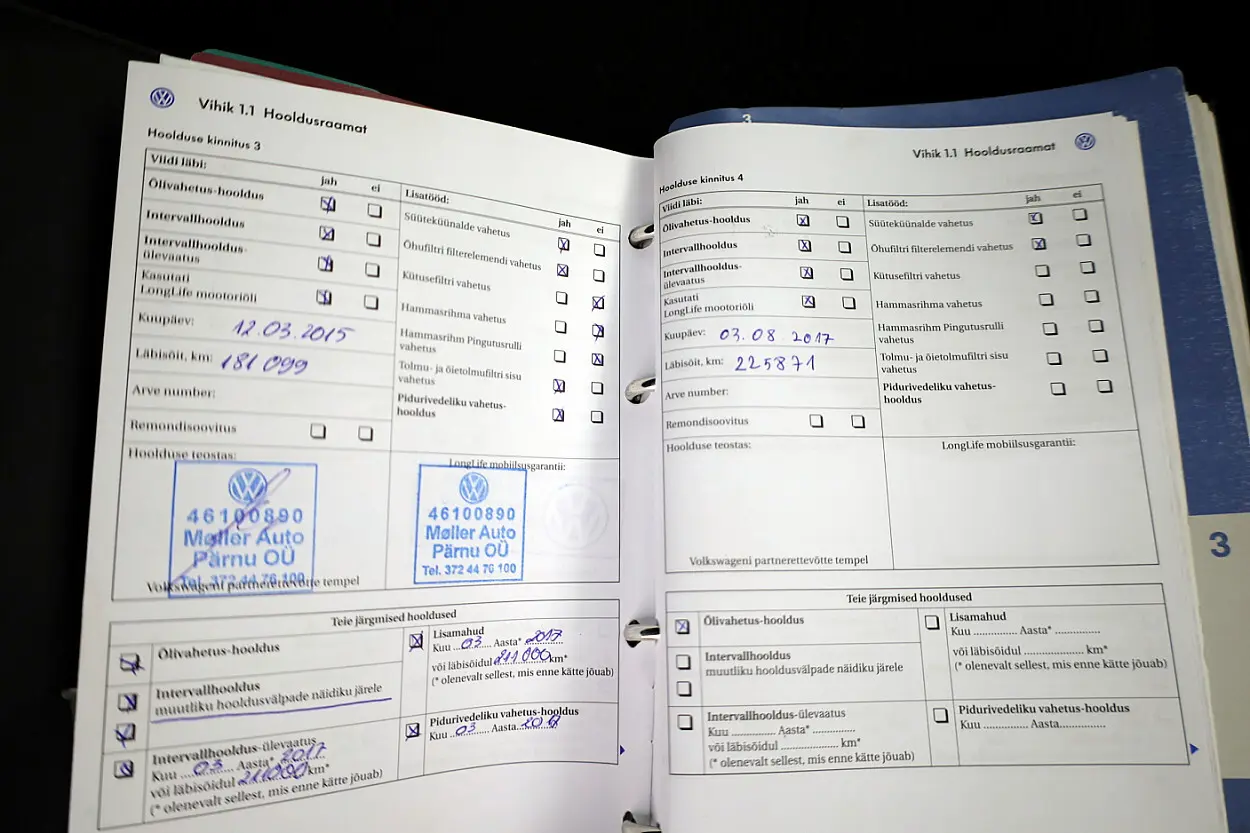 Vihik 1.1 Hooldusraamat
Hoolduse kinnitus 3
Viidi läbi:
jah ei
Õlivahetus-hooldus
Intervallhooldus
Intervallhooldus-
ülevaatus
Kasutati
LongLife mootoriõli
Kuupäev: 12.03.2015
Läbisõit, km: 181 099
Arve number:
Remondisoovitus
Lisatööd:
jah ei
Süüteküünalde vahetus
Õhufiltri filterelemendi vahetus
Kütusefiltri vahetus
Hammasrihma vahetus
Hammasrihm Pingutusrulli
vahetus
Tolmu- ja õietolmufiltri sisu
vahetus
Pidurivedeliku vahetus-
hooldus
Hoolduse teostas:
46100890
Møller Auto
Pärnu OÜ
Tel. 372 44 76 100
Volkswageni partnerettevõtte tempel
LongLife mobiilsusgarantii:
46100890
Møller Auto
Pärnu OÜ
Tel. 372 44 76 100
Teie järgmised hooldused
Õlivahetus-hooldus
Intervallhooldus
muutliku hooldusvälpade näidiku järele
Intervallhooldus-ülevaatus
Kuu ....03.... Aasta* 2017
või läbisõidul 211000 km*
(* olenevalt sellest, mis enne kätte jõuab)
Lisamahud
Kuu ..03.... Aasta* 2017
või läbisõidul 211 000 km*
(* olenevalt sellest, mis enne kätte jõuab)
Pidurivedeliku vahetus-hooldus
Kuu ..03.... Aasta
3
Vihik 1.1 Hooldusraamat
Hoolduse kinnitus 4
Viidi läbi:
jah ei
Õlivahetus-hooldus
Intervallhooldus
Intervallhooldus-
ülevaatus
Kasutati
LongLife mootoriõli
Kuupäev: 03.08 2017
Läbisõit, km: 225871
Arve number:
Remondisoovitus
Lisatööd:
jah ei
Süüteküünalde vahetus
Õhufiltri filterelemendi vahetus
Kütusefiltri vahetus
Hammasrihma vahetus
Hammasrihm Pingutusrulli
vahetus
Tolmu- ja õietolmufiltri sisu
vahetus
Pidurivedeliku vahetus-
hooldus
Hoolduse teostas:
Volkswageni partnerettevõtte tempel
LongLife mobiilsusgarantii:
Teie järgmised hooldused
Õlivahetus-hooldus
Intervallhooldus
muutliku hooldusvälpade näidiku järele
Intervallhooldus-ülevaatus
Kuu ............. Aasta* .............
või läbisõidul ........................ km*
(* olenevalt sellest, mis enne kätte jõuab)
Lisamahud
Kuu ............. Aasta* .............
või läbisõidul ........................ km*
(* olenevalt sellest, mis enne kätte jõuab)
Pidurivedeliku vahetus-hooldus
Kuu ............. Aasta.............
3